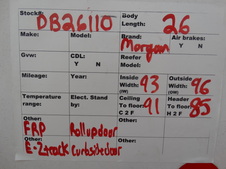 Stock#: DB26110 Body Length: 26
Make: Model: Brand: Morgan Air brakes: Y N
Gvw: CDL: Y N Reefer Model:
Mileage: Year: Inside Width: (IW) 93 Outside Width: (OW) 96
Temperature range: Elect. Stand by: Ceiling To floor: C 2 F 91 Header To floor: H 2 F 85
Other: FRP Rollupdoor
Other: E-Track Curbsidedoor